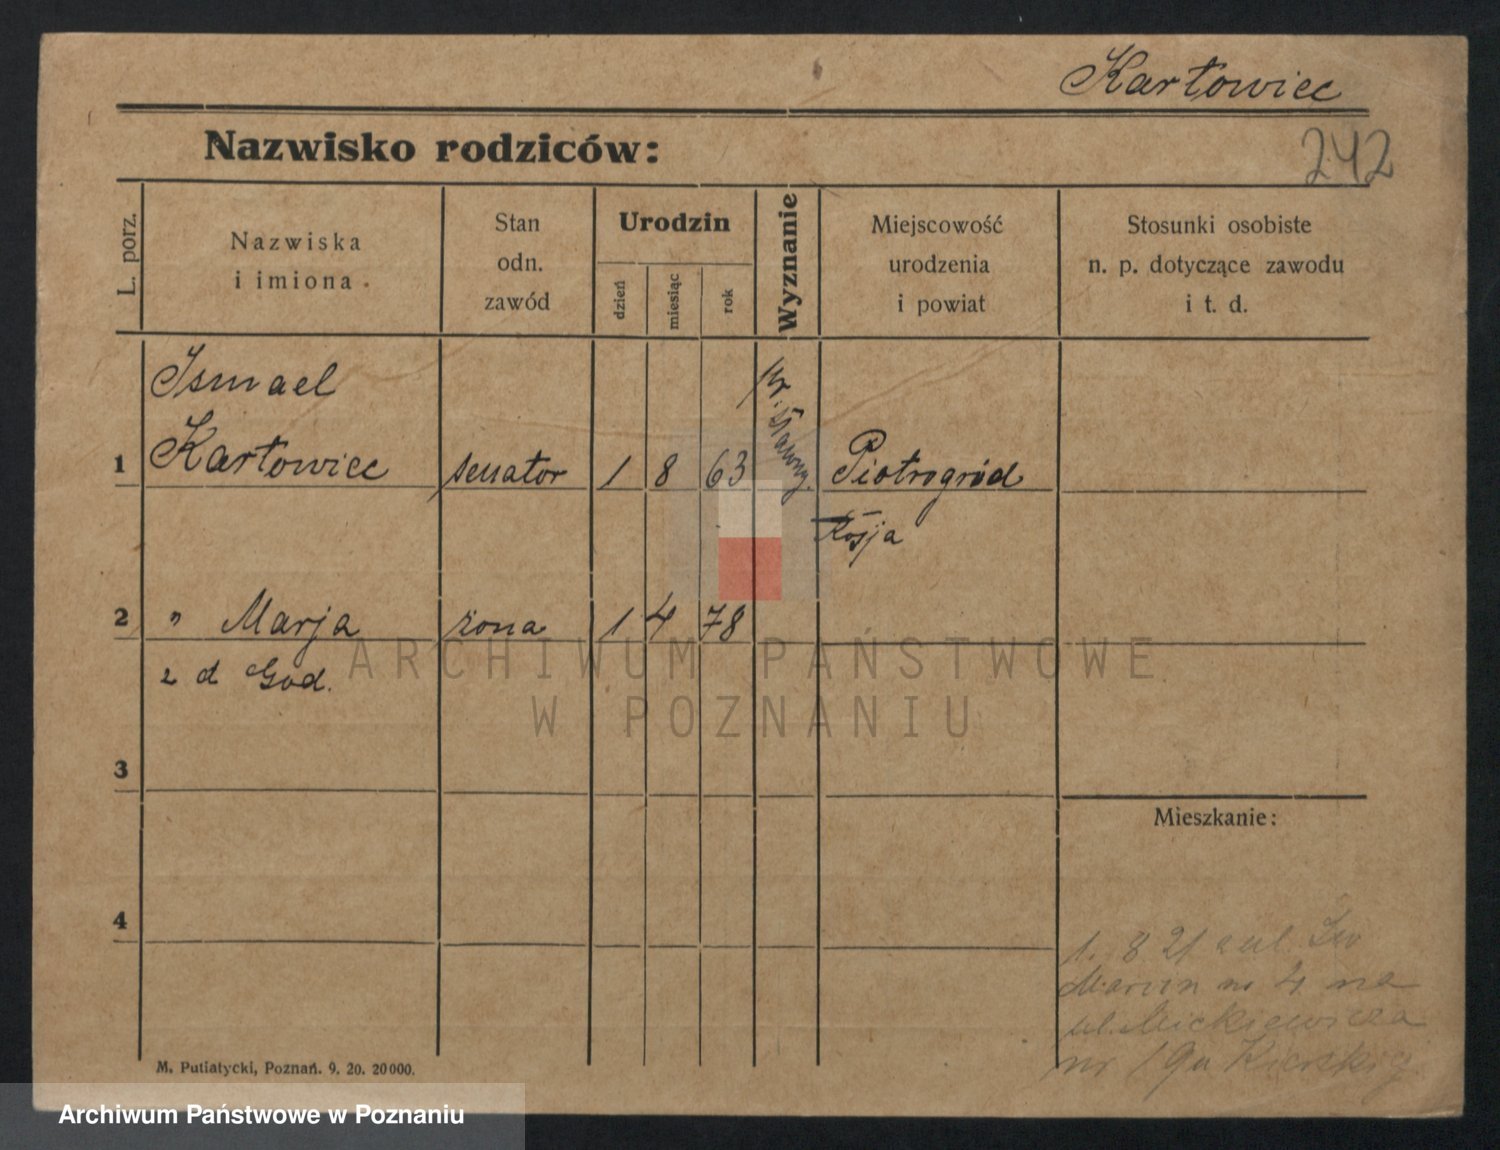 Kartowiec
Nazwisko rodziców:
242
L. porz.
Nazwiska
i imiona
Stan
odn.
zawód
Urodzin
dzień
miesiąc
rok
Wyznanie
Miejscowość
urodzenia
i powiat
Stosunki osobiste
n. p. dotyczące zawodu
i t. d.
Ismael
1 Kartowiec senator 1 8 63 Piotrogród
Rosja
2 " Marja żona 1 4 78
z d God.
3
Mieszkanie:
4
1. 8 21 z ul. Św
Marcin nr 4 na
ul. Mickiewicza
nr
M. Putiatycki, Poznań. 9. 20. 20000.
ARCHIWUM PAŃSTWOWE
W POZNANIU
Archiwum Państwowe w Poznaniu